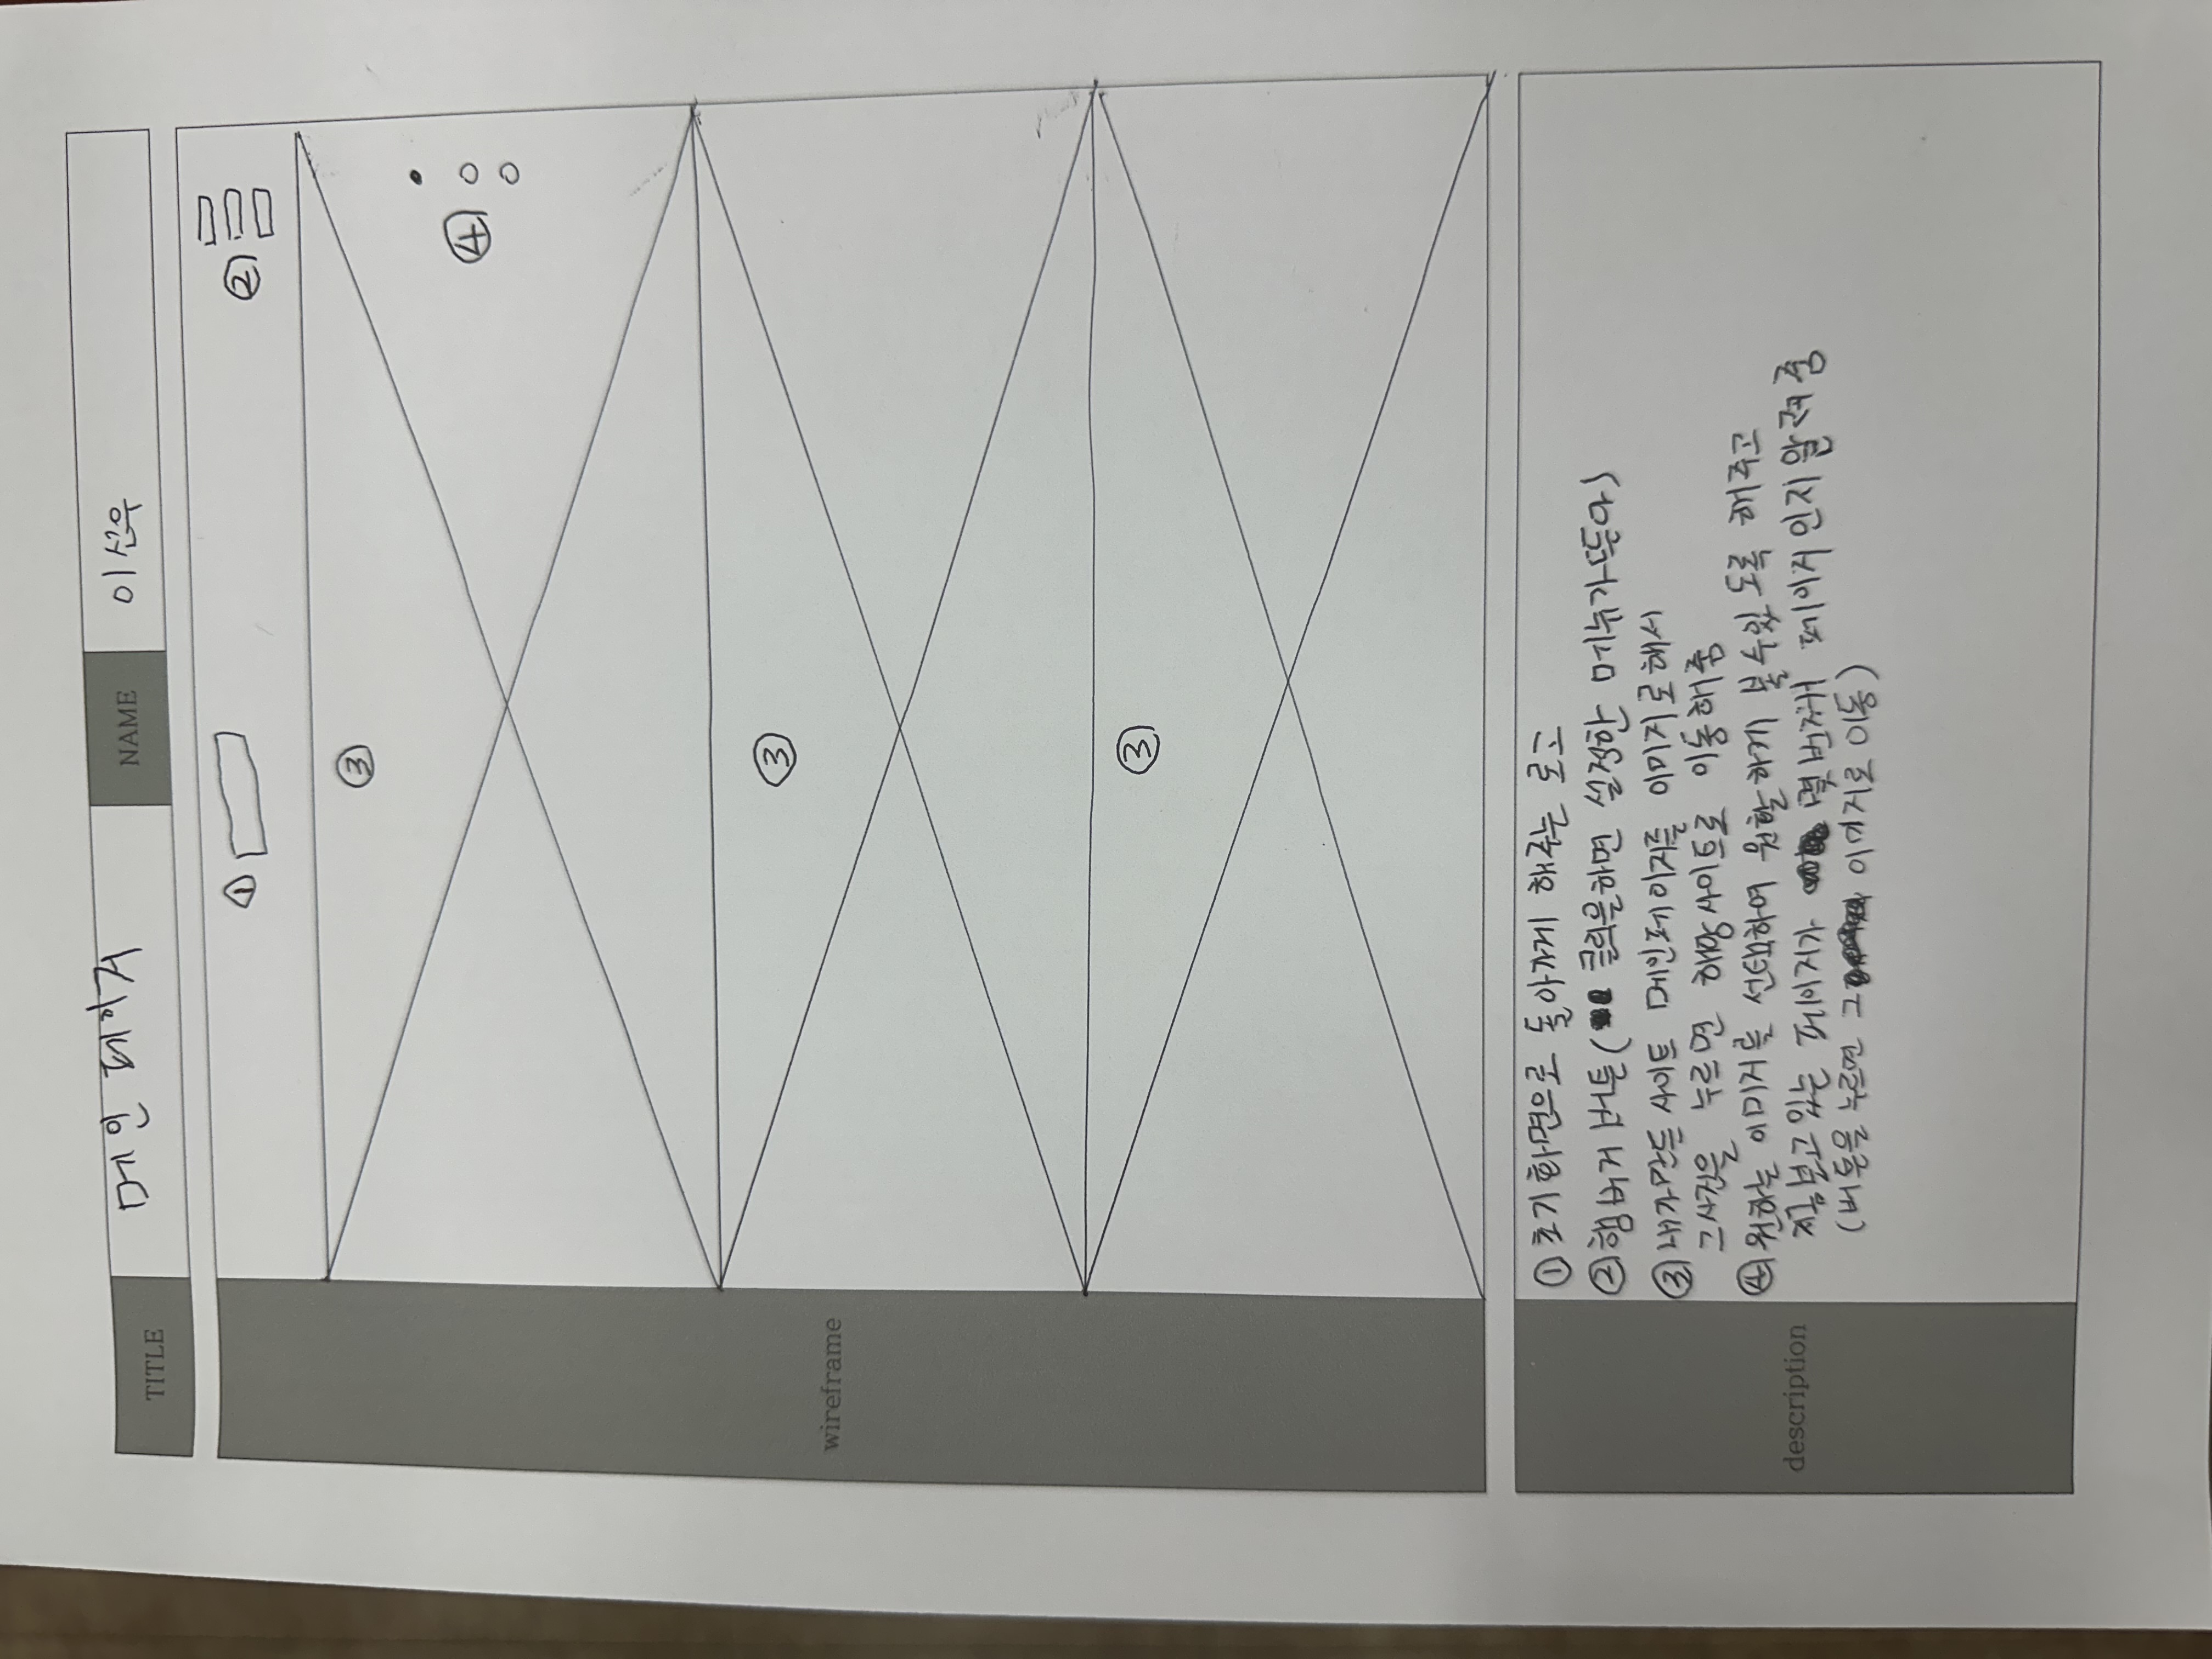 TITLE 메인 페이지 NAME 이선우
① ②
③
④
③
wireframe
③
① 초기화면으로 돌아가게 해주는 로고
② 햄버거 버튼( 클릭을하면 설정한 메뉴가뜬다)
③ 내가만든 사이트 메인페이지를 이미지로해서
그사진을 누르면 해당사이트로 이동해줌
④ 원하는 이미지를 선택하여 원할하게 볼수있도록 해주고
description 지금보고있는 페이지가 몇번째 페이지인지알려줌
(버튼을 누르면 그 이미지로 이동)